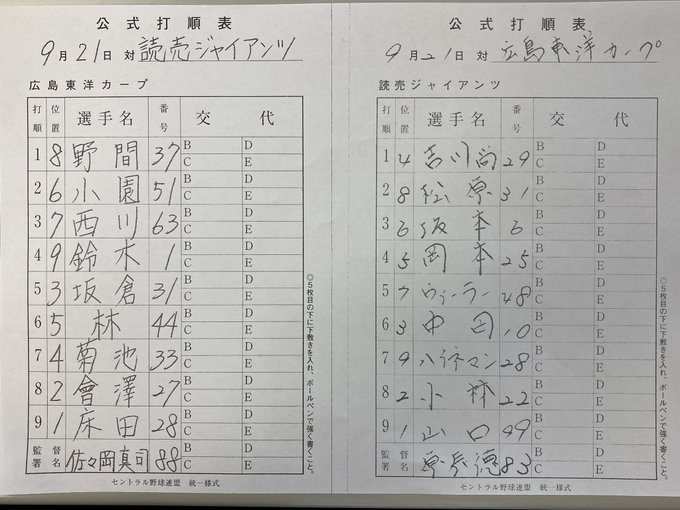 公式打順表
9月21日 対 読売ジャイアンツ
広島東洋カープ
打順 位置 選手名 番号 交代
1 8 野間 37 B D C E
2 6 小園 51 B D C E
3 7 西川 63 B D C E
4 9 鈴木 1 B D C E
5 3 坂倉 31 B D C E
6 5 林 44 B D C E
7 4 菊池 33 B D C E
8 2 會澤 27 B D C E
9 1 床田 28 B D C E
監督署名 佐々岡真司 88 B D C E
セントラル野球連盟 統一様式
◎5枚目の下に下敷きを入れ、ボールペンで強く書くこと。
公式打順表
9月21日 対 広島東洋カープ
読売ジャイアンツ
打順 位置 選手名 番号 交代
1 4 吉川尚 29 B D C E
2 8 松原 31 B D C E
3 6 坂本 6 B D C E
4 5 岡本 25 B D C E
5 7 ウィーラー 48 B D C E
6 3 中田 10 B D C E
7 9 ハイネマン 28 B D C E
8 2 小林 22 B D C E
9 1 山口 99 B D C E
監督署名 原辰徳 83 B D C E
セントラル野球連盟 統一様式
◎5枚目の下に下敷きを入れ、ボールペンで強く書くこと。